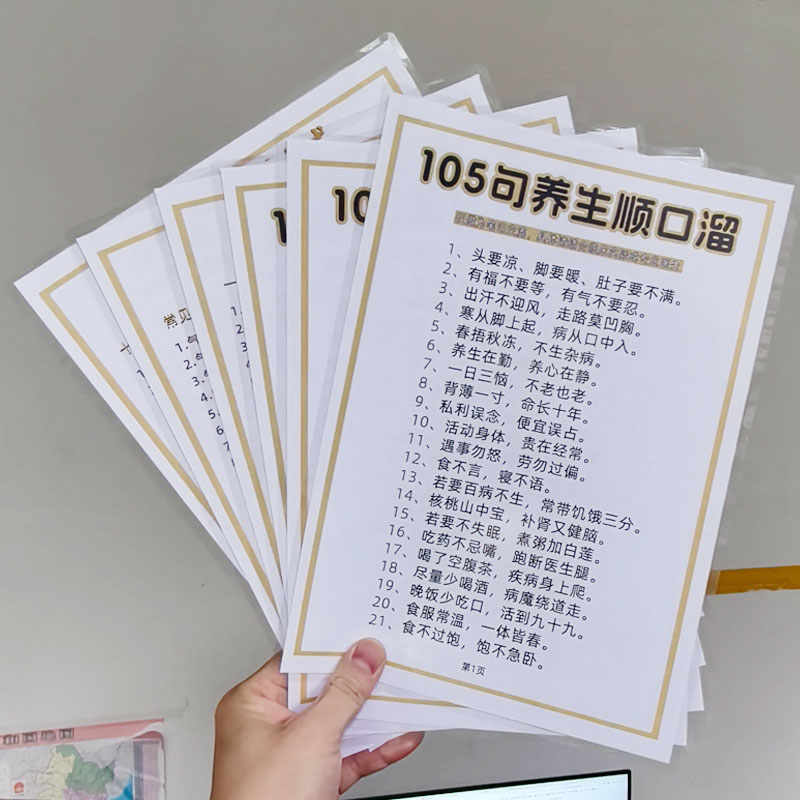 105句养生顺口溜
1、头要凉、脚要暖、肚子要不满。
2、有福不要等，有气不要忍。
3、出汗不迎风，走路莫凹胸。
4、寒从脚上起，病从口中入。
5、春捂秋冻，不生杂病。
6、养生在勤，养心在静。
7、一日三恼，不老也老。
8、背薄一寸，命长十年。
9、私利误念，便宜误占。
10、活动身体，贵在经常。
11、遇事勿怒，劳勿过偏。
12、食不言，寝不语。
13、若要百病不生，常带饥饿三分。
14、核桃山中宝，补肾又健脑。
15、若要不失眠，煮粥加白莲。
16、吃药不忌嘴，跑断医生腿。
17、喝了空腹茶，疾病身上爬。
18、尽量少喝酒，病魔绕道走。
19、晚饭少吃口，活到九十九。
20、食服常温，一体皆春。
21、食不过饱，饱不急卧。
第1页
10
1
常见